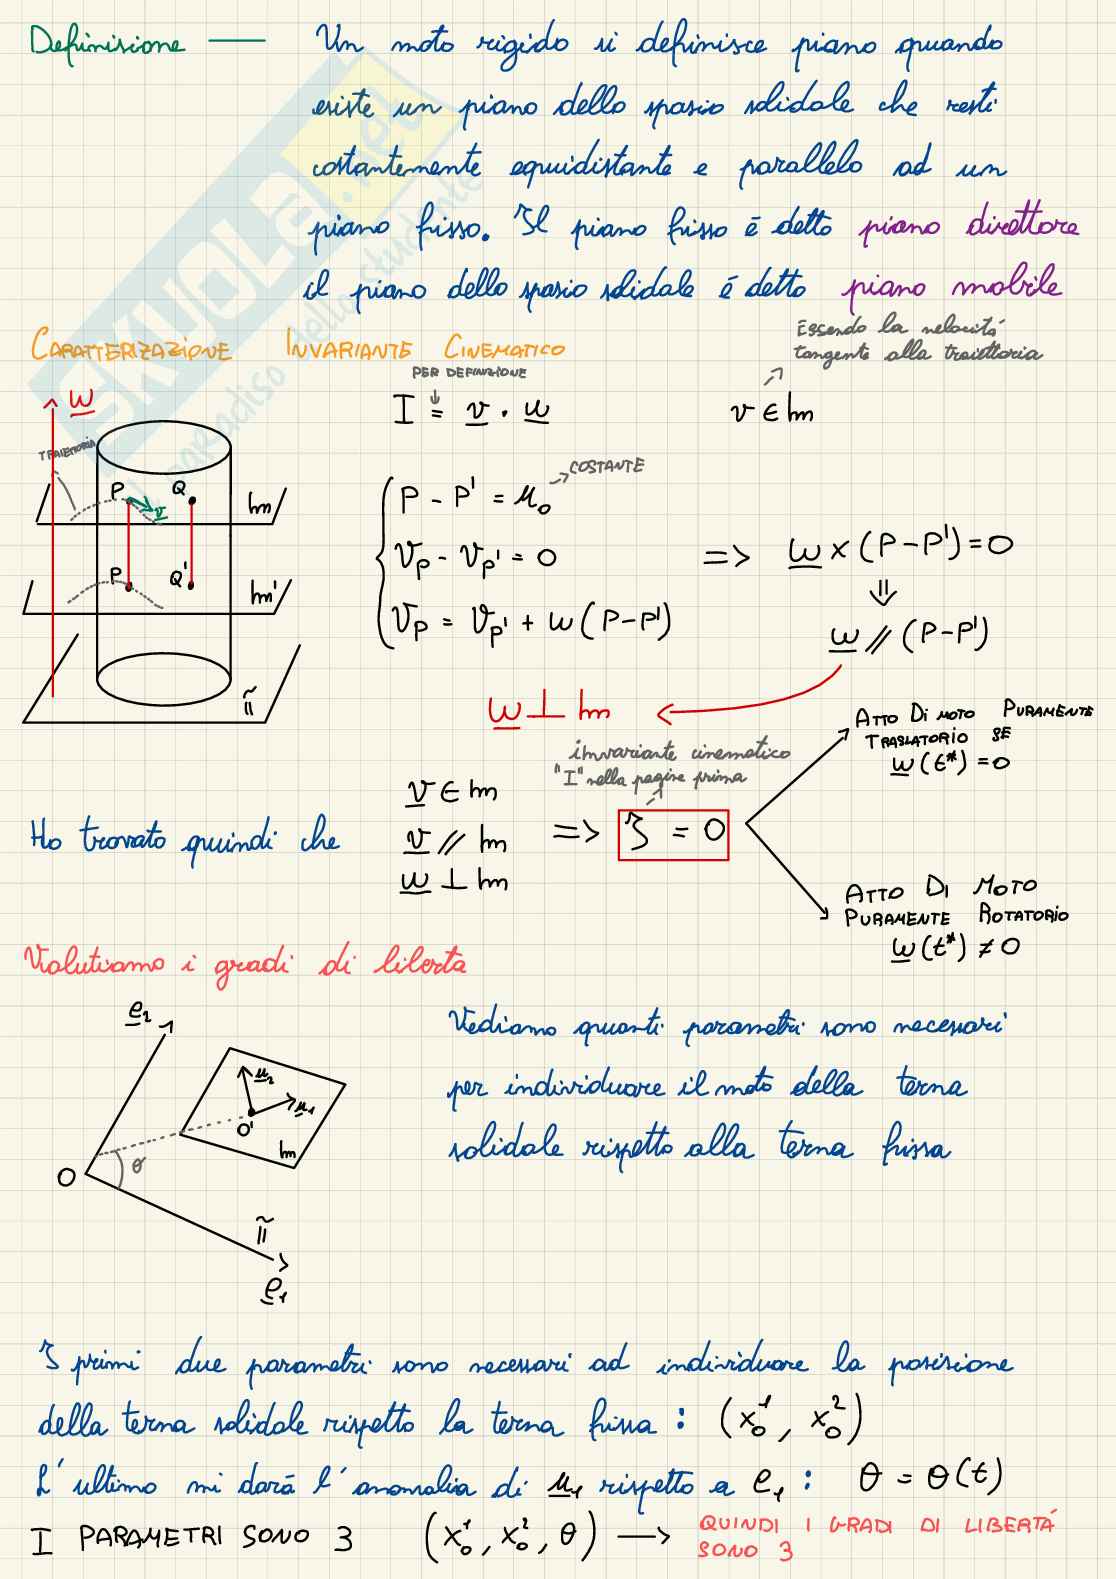 Definizione — Un moto rigido si definisce piano quando
esiste un piano dello spazio solidale che resti
costantemente equidistante e parallelo ad un
piano fisso. Il piano fisso è detto piano direttore
il piano dello spazio solidale é detto piano mobile
CARATTERIZAZIONE INVARIANTE CINEMATICO
PER DEFINIZIONE
I = v · w
Essendo la velocitá
tangente alla traiettoria
v ∈ m
w
TRAIETTORIA
P Q v m
P Q' m'
π̃
P - P' = u₀ → COSTANTE
v_P - v_P' = 0
v_P = v_P' + w (P-P')
=> w × (P-P') = 0
⇓
w // (P-P')
w ⊥ m
invariante cinematico
"I" nella pagine prima
Ho trovato quindi che
v ∈ m
v // m
w ⊥ m
=> I = 0
ATTO DI MOTO PURAMENTE
TRASLATORIO SE
w (t*) = 0
ATTO DI MOTO
PURAMENTE ROTATORIO
w (t*) ≠ 0
Valutiamo i gradi di libertá
e₂
u₂
u₁
O'
m
θ
O
π̃
e₁
Vediamo quanti parametri sono necessari
per individuare il moto della terna
solidale rispetto alla terna fissa
I primi due parametri sono necessari ad individuare la posizione
della terna solidale rispetto la terna fissa : (x₀¹, x₀²)
L'ultimo mi darà l'anomalia di u₁ rispetto a e₁ : θ = θ(t)
I PARAMETRI SONO 3 (x₀¹, x₀², θ) → QUINDI I GRADI DI LIBERTÁ
SONO 3
SKUOLA.net
il paradiso dello studente